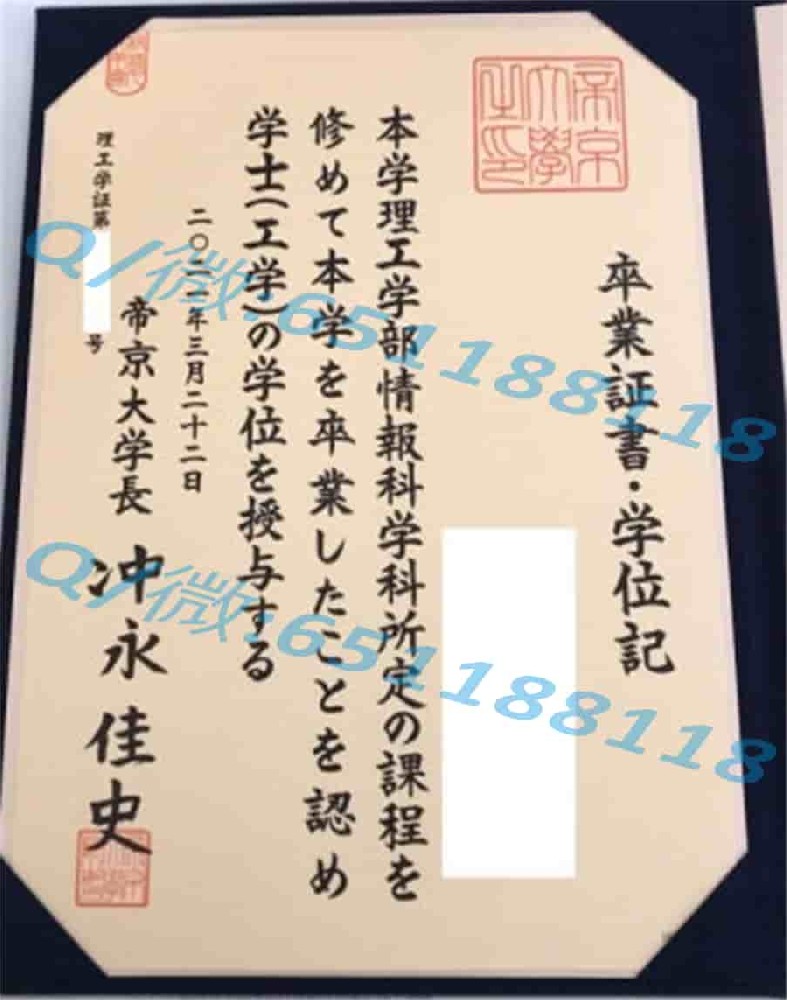 帝京
大學
之印
卒業証書・学位記
本学理工学部情報科学科所定の課程を
修めて本学を卒業したことを認め
学士(工学)の学位を授与する
二〇二一年三月二十二日
帝京大学長 冲永佳史
理工学証第 号
Q/微:6541188118
Q/微:6541188118